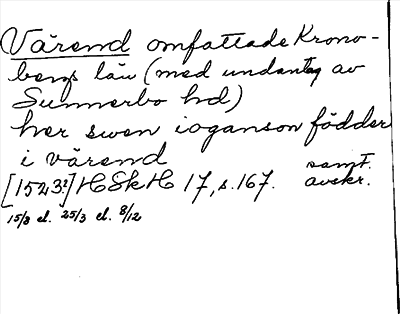 Värend omfattade Krono-
bergs län (med undantag av
Sunnerbo hd)
her swen ioganson födder
i värend
[1523?] HSkH 17, s. 167. samt. avskr.
15/3 el. 25/3 el. 8/12